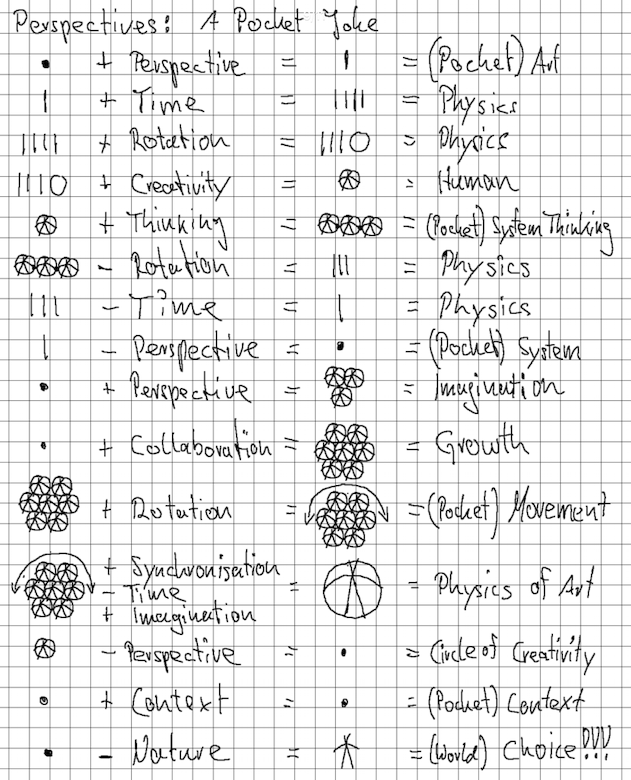 Perspectives: A Pocket Joke
• + Perspective = | = (Pocket) Art
| + Time = |||| = Physics
|||| + Rotation = |||O = Physics
|||O + Creativity = = Human
+ Thinking = = (Pocket) System Thinking
- Rotation = ||| = Physics
||| - Time = | = Physics
| - Perspective = • = (Pocket) System
• + Perspective = = Imagination
• + Collaboration = = Growth
+ Rotation = = (Pocket) Movement
+ Synchronisation
- Time = = Physics of Art
+ Imagination
- Perspective = • = Circle of Creativity
• + Context = • = (Pocket) Context
• - Nature = = (World) Choice!!!